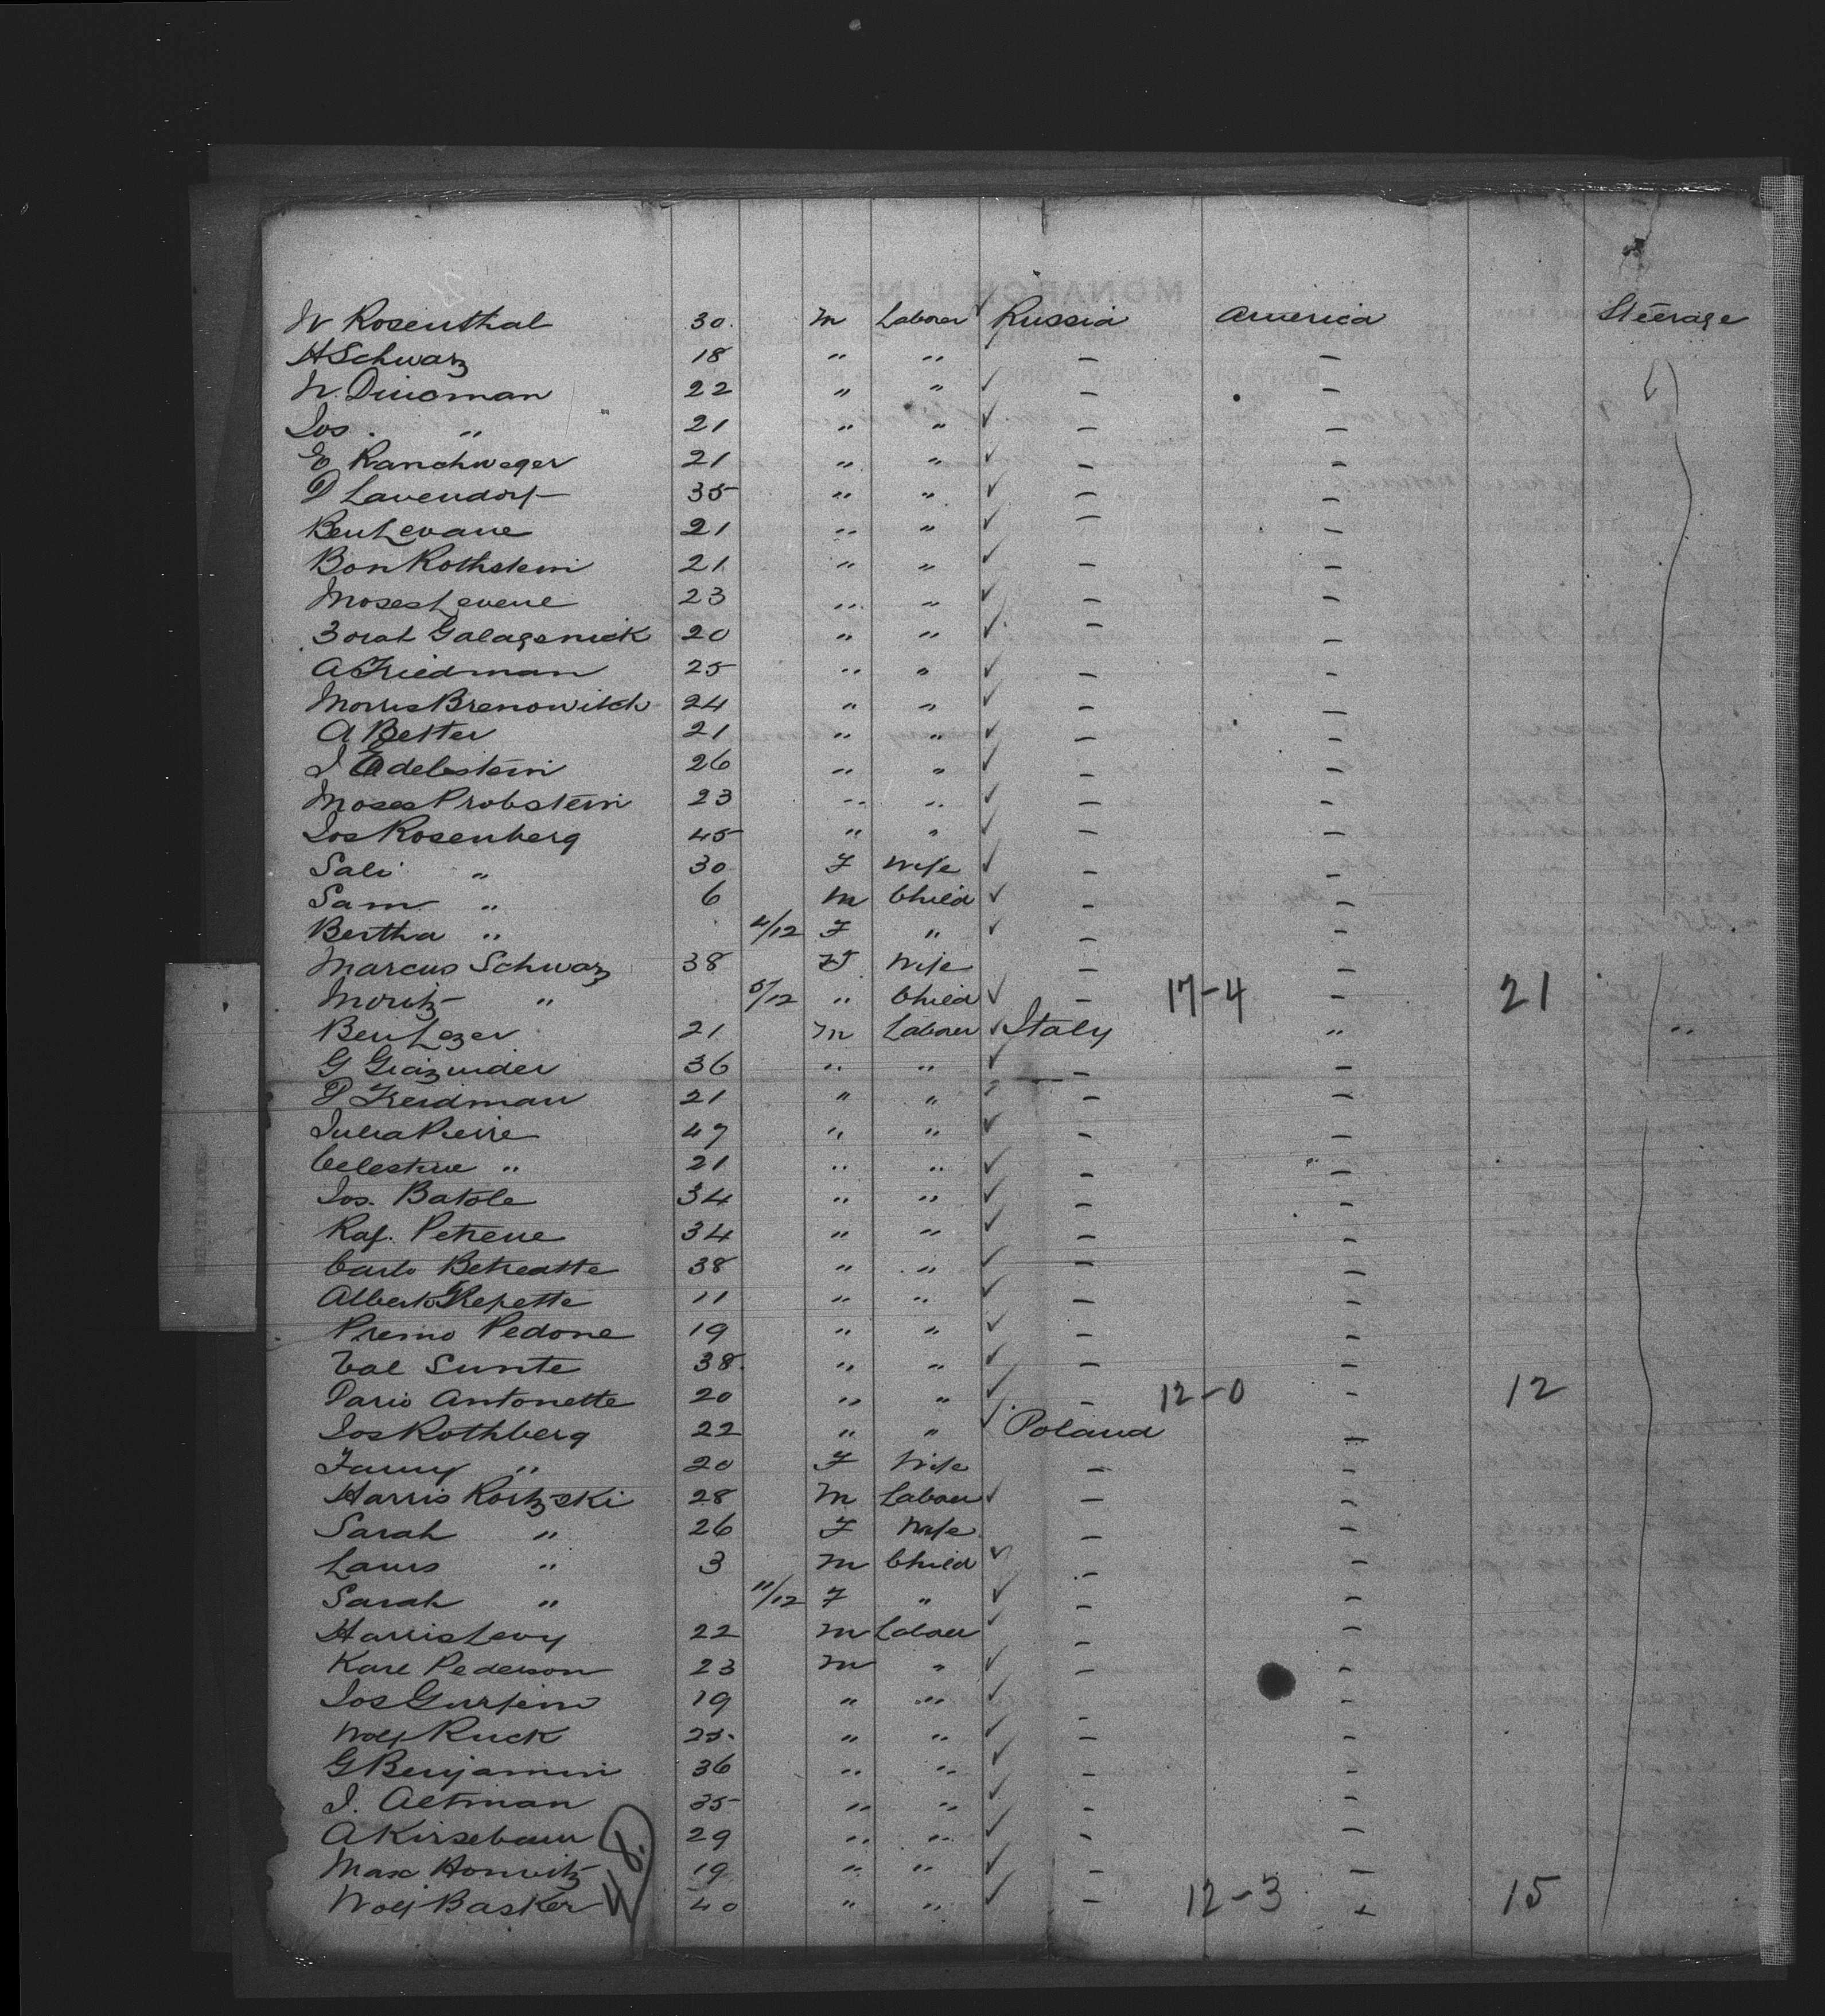 W Rosenthal 30 M Laborer ✓ Russia America Steerage
H Schwarz 18 " " — —
N. Dinoman 22 " " ✓ — —
Jos. " 21 " " ✓ — —
E Ranchweger 21 " " ✓ — —
D Lavendorf 35 " " ✓ — —
Ben Levane 21 " " ✓ — —
Bon Rothstein 21 " " ✓ — —
Moses Levene 23 " " ✓ — —
Galagenick 20 " " ✓ — —
A Friedman 25 " " ✓ — —
Morris Brenowitch 24 " " ✓ — —
A Better 21 " " ✓ — —
J Edelstein 26 " " ✓ — —
Moses Probstein 23 " " ✓ — —
Jos Rosenberg 45 " " ✓ — —
Sali " 30 F Wife ✓ — —
Sam " 6 M Child ✓ — —
Bertha " 4/12 F " ✓ — —
Marcus Schwarz 38 F Wife — —
Moritz " 5/12 " Child ✓ — 17-4 — 21
Ben Lezer 21 M Laborer ✓ Italy " "
G 36 " " ✓ — —
P Freidman 21 " " — —
Julia Pierre 47 " " ✓ — —
Celestine " 21 " " ✓ — —
Jos. Batole 34 " " ✓ — —
Raf. Petrene 34 " " ✓ — —
Carlo Betreatte 38 " " ✓ — —
Alberto Repette 11 " " ✓ — —
Premo Pedone 19 " " ✓ — —
Val Sunte 38 " " ✓ — —
Dario Antonette 20 " " ✓ — 12-0 — 12
Jos Rothberg 22 " " ✓ Poland —
Fanny " 20 F Wife — —
Harris Koitzski 28 M Laborer ✓ — —
Sarah " 26 F Wife — —
Laurs " 3 M Child ✓ — —
Sarah " 11/12 F " ✓ — —
Harris Levy 22 M Laborer ✓ — —
Karl Pederson 23 M " ✓ — —
Jos Gurfein 19 " " ✓ — —
Wolf Ruck 25 " " ✓ — —
G Benjamin 36 " " ✓ — —
J. Altman 35 " " ✓ — —
A Kirsebaum 29 " " ✓ — —
Max Horwitz 19 " " ✓ — —
Wolf Basker 40 " " ✓ — 12-3 — 15
48.